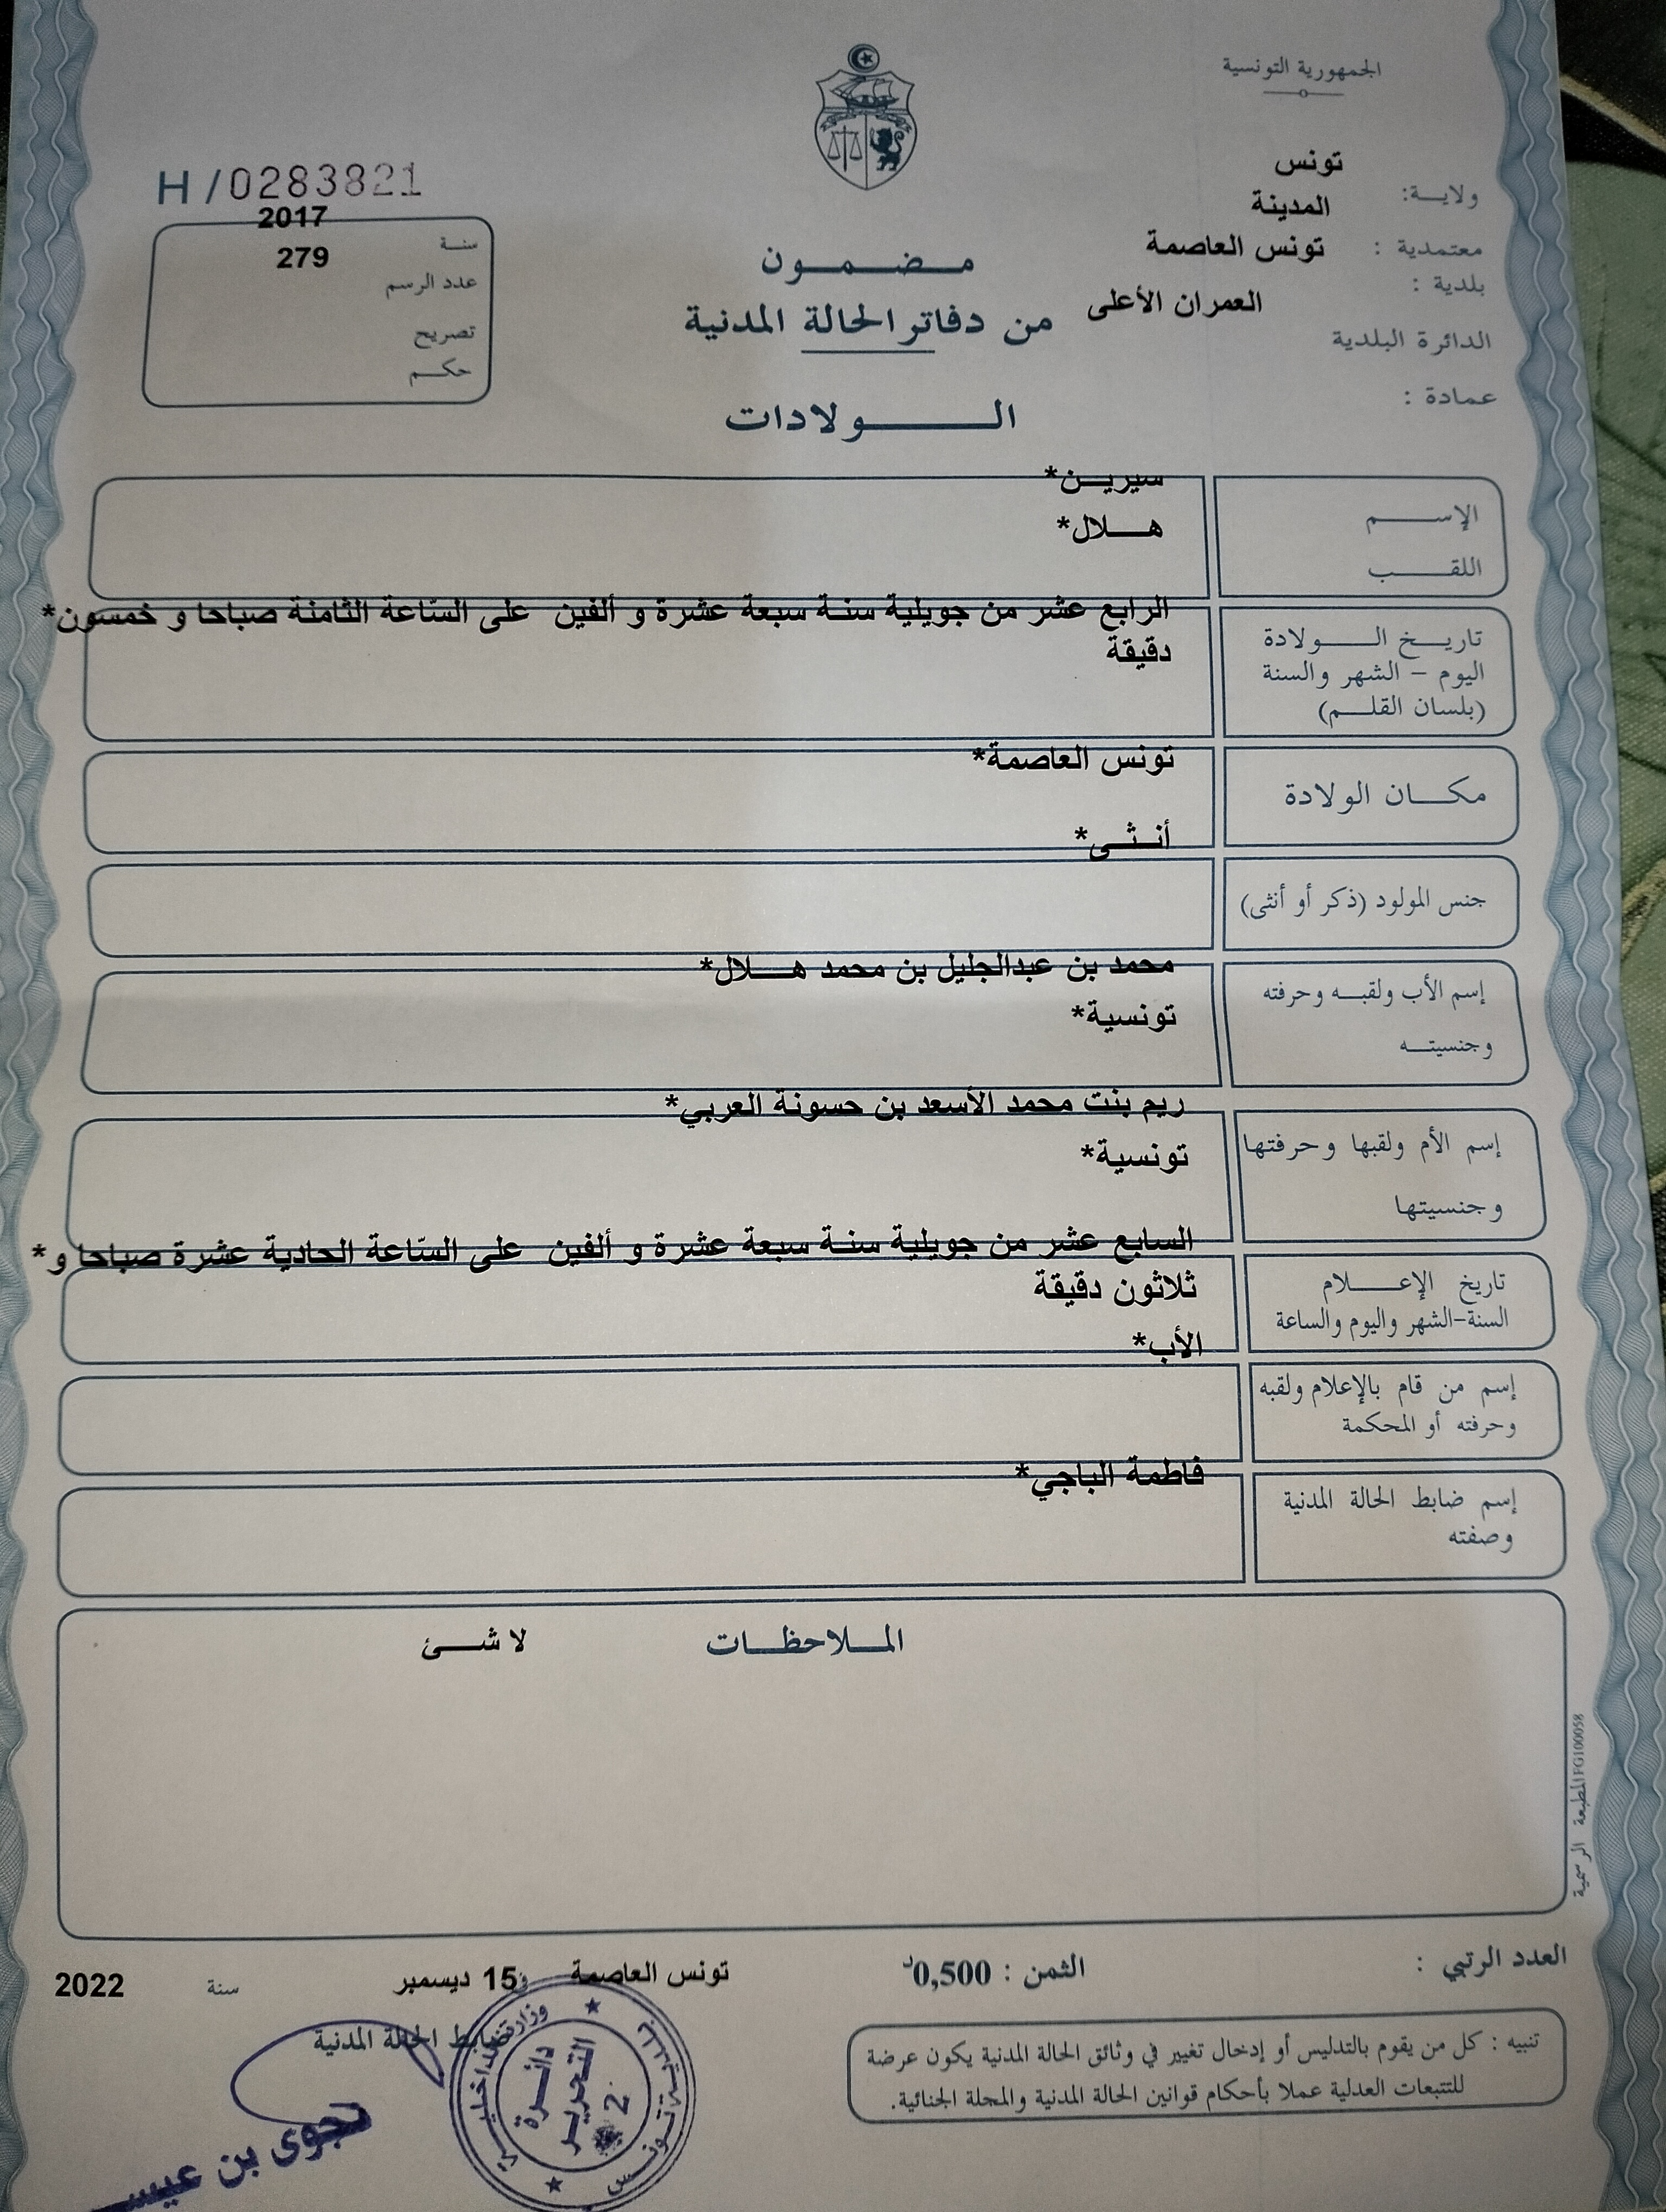 الجمهورية التونسية
ولايـــة: تونس
معتمدية : المدينة
بلدية : تونس العاصمة
الدائرة البلدية العمران الأعلى
عمادة :
H/0283821
سنـة 2017
عدد الرسم 279
تصريح
حكـــم
مـــضـــمـــون
من دفاتر الحالة المدنية
الـــــولادات
الإســـــم سيريــن*
اللقـــــب هــلال*
تاريــخ الــــولادة الرابع عشر من جويلية سنـة سبعة عشرة و ألفين على السّاعة الثامنة صباحا و خمسون*
دقيقة
اليوم – الشهر والسنة
(بلسان القلــم)
مكـــان الولادة تونس العاصمة*
جنس المولود (ذكر أو أنثى) أنــثــى*
إسم الأب ولقبــه وحرفته محمد بن عبدالجليل بن محمد هــلال*
وجنسيتــه تونسية*
إسم الأم ولقبها وحرفتها ريم بنت محمد الأسعد بن حسونة العربي*
وجنسيتها تونسية*
تاريخ الإعــــلام السابع عشر من جويلية سنـة سبعة عشرة و ألفين على السّاعة الحادية عشرة صباحا و*
ثلاثون دقيقة
السنة-الشهر واليوم والساعة
إسم من قام بالإعلام ولقبه الأب*
وحرفته أو المحكمة
إسم ضابط الحالة المدنية فاطمة الباجي*
وصفته
المــلاحظــات لا شــئ
المطبعة الرسمية FG100058
العدد الرتبي :
الثمن : 0,500د
تونس العاصمة 15 ديسمبر سنة 2022
ضابط الحالة المدنية
تنبيه : كل من يقوم بالتدليس أو إدخال تغيير في وثائق الحالة المدنية يكون عرضة
للتتبعات العدلية عملا بأحكام قوانين الحالة المدنية والمجلة الجنائية.
دائــرة
التحريــر
2
نجوى بن عيســـ